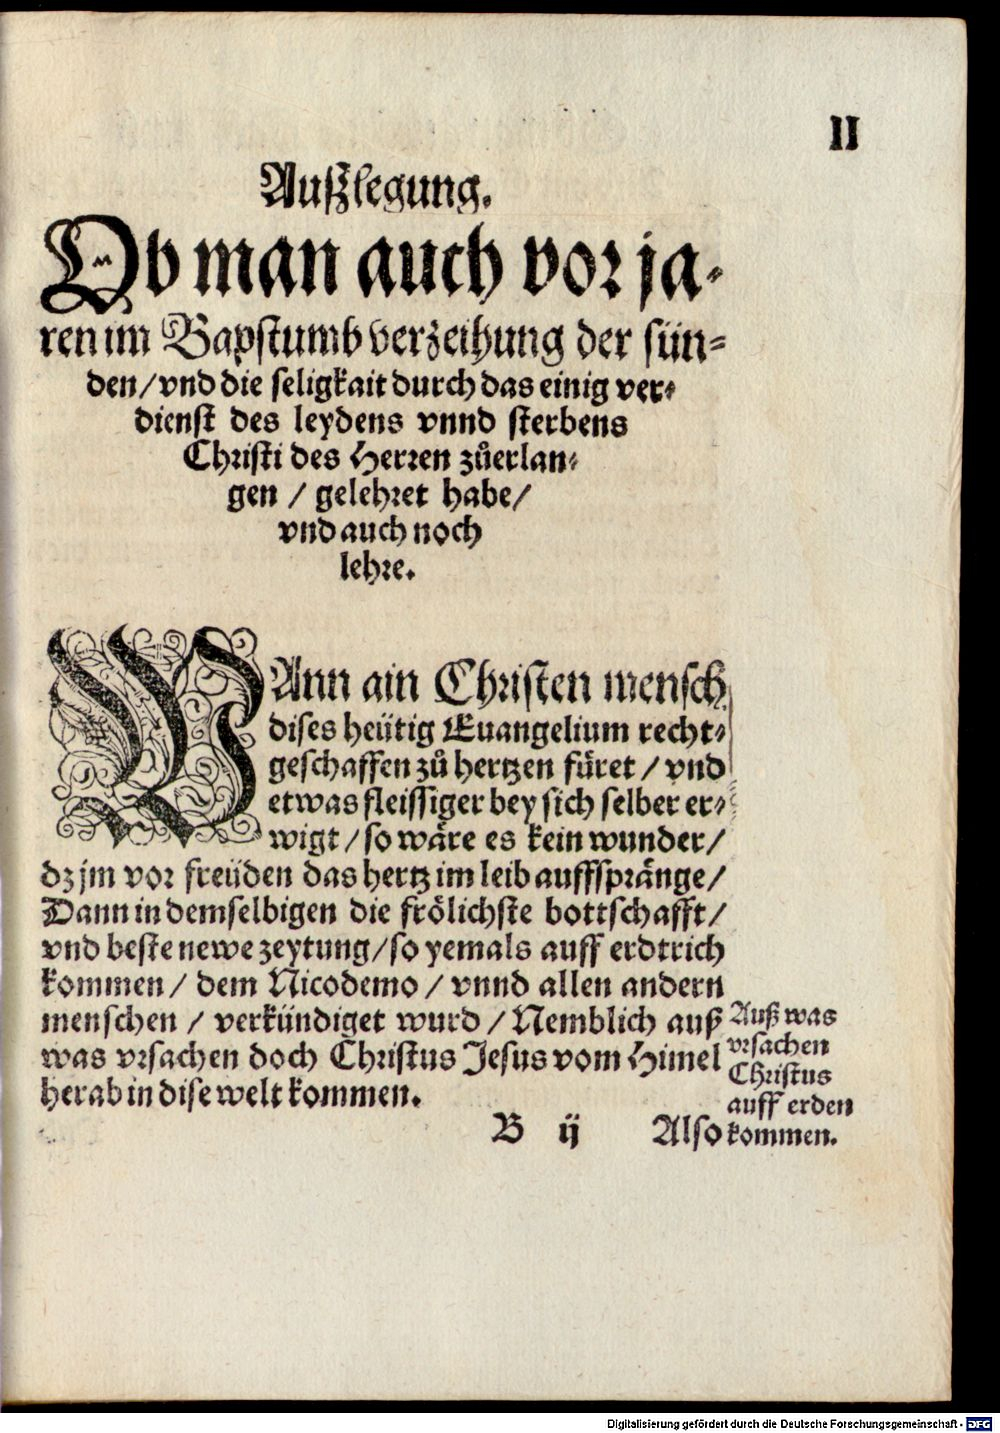 II
Außlegung.
Ob man auch vor ja-
ren im Bapstumb verzeihung der sün-
den/ vnd die seligkait durch das einig ver-
dienst des leydens vnnd sterbens
Christi des Herren zůerlan-
gen / gelehret habe/
vnd auch noch
lehre.
WAnn ain Christen mensch
dises heütig Euangelium recht-
geschaffen zů hertzen füret / vnd
etwas fleissiger bey sich selber er-
wigt / so wäre es kein wunder/
dz jm vor freüden das hertz im leib auffspränge/
Dann in demselbigen die frölichste bottschafft/
vnd beste newe zeytung/ so yemals auff erdtrich
kommen / dem Nicodemo / vnnd allen andern
menschen / verkündiget wurd / Nemblich auß
was vrsachen doch Christus Jesus vom Himel
herab in dise welt kommen.
Auß was
vrsachen
Christus
auff erden
kommen.
B ij Also
Digitalisierung gefördert durch die Deutsche Forschungsgemeinschaft - DFG